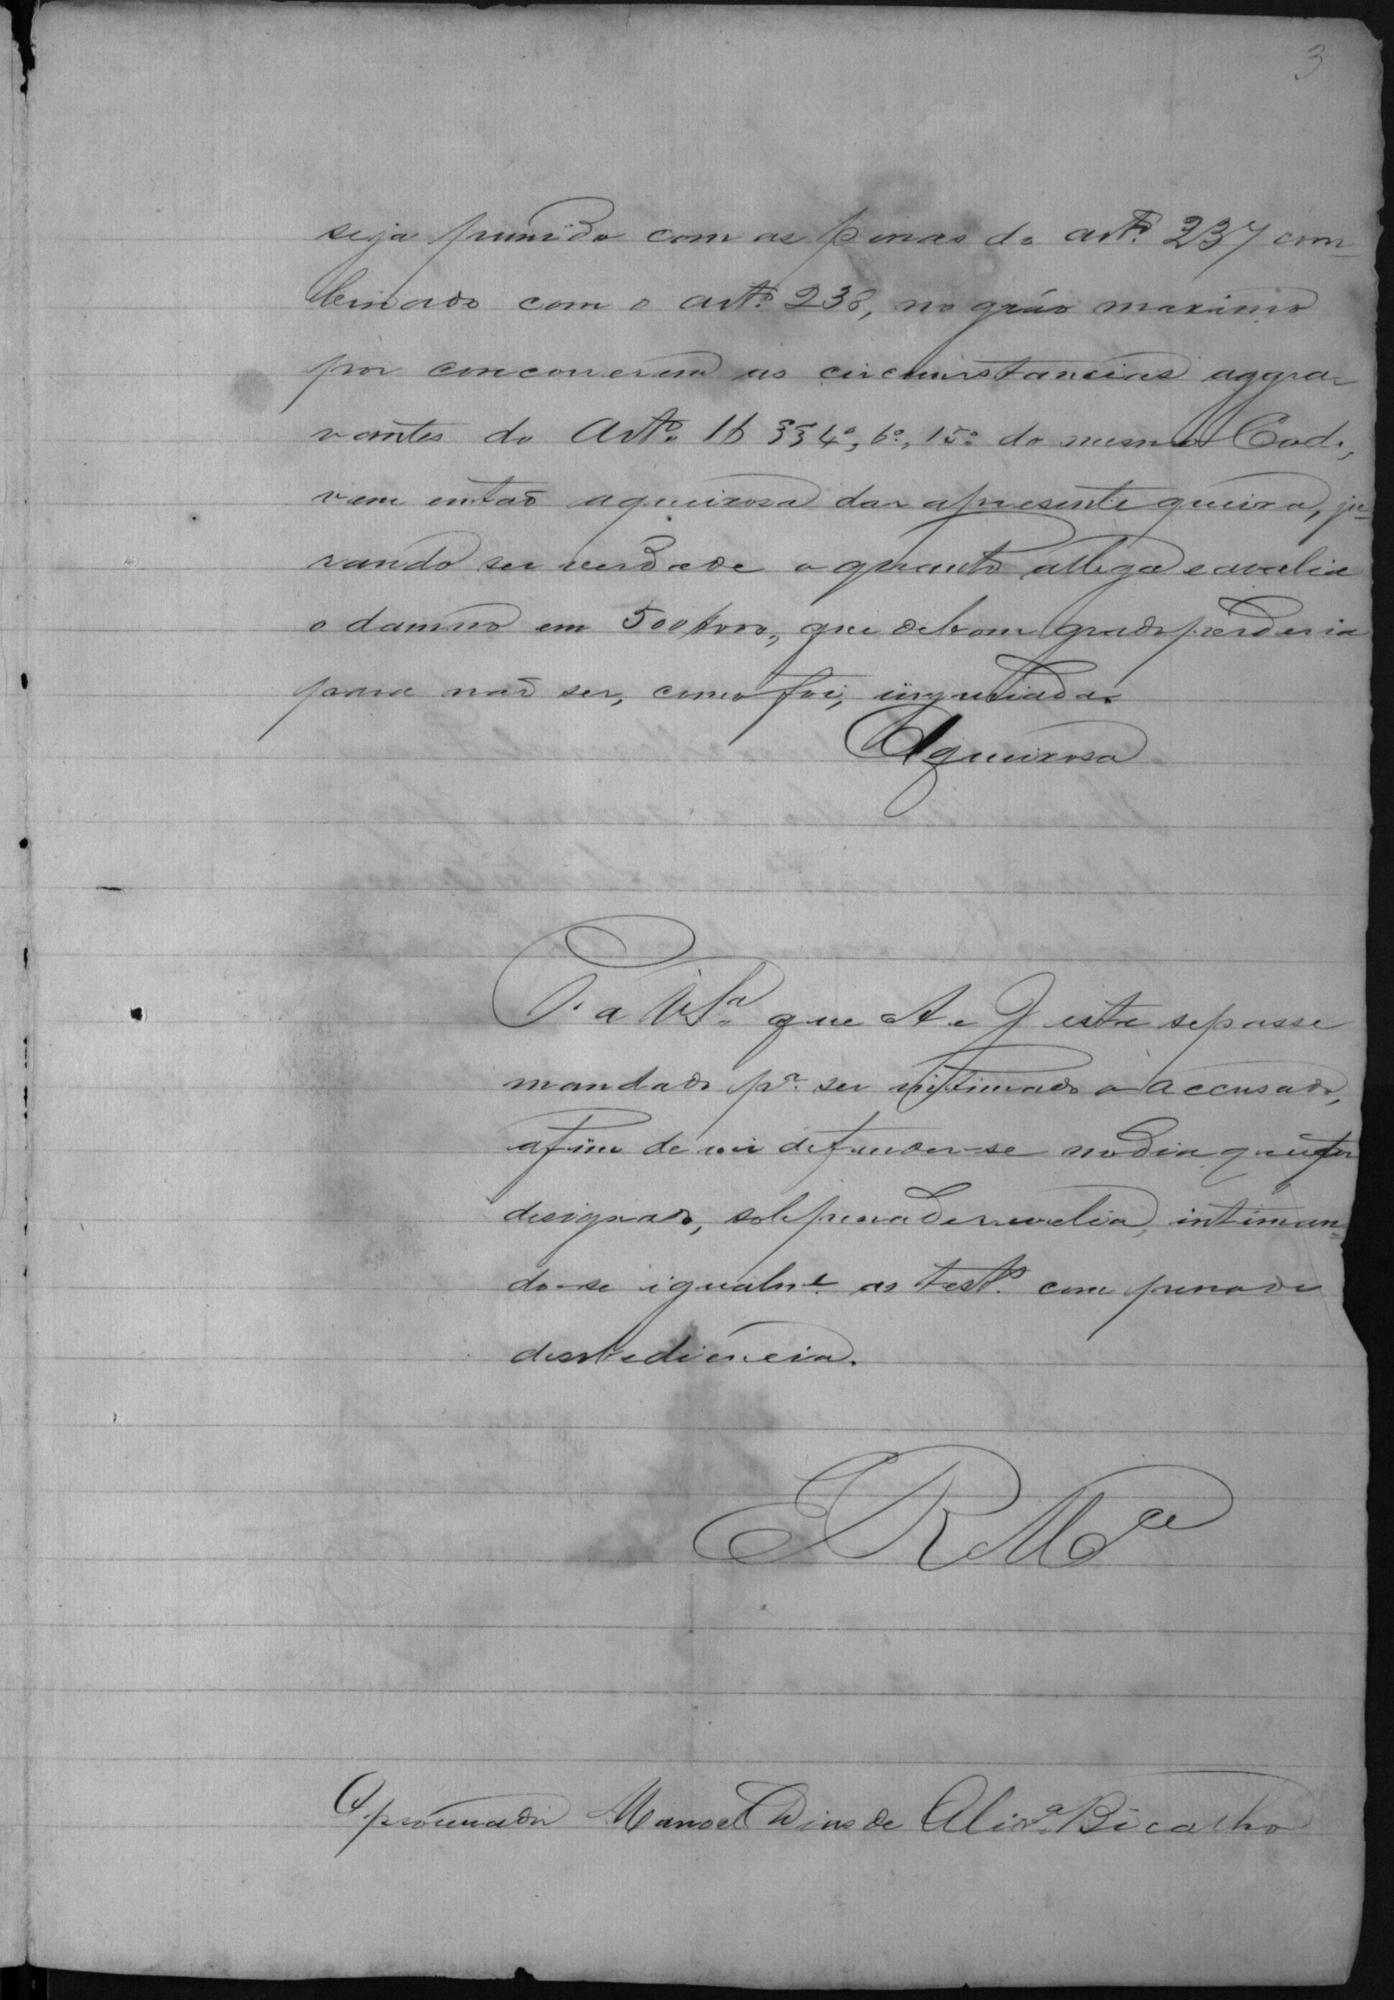 3
seja punido com as penas do artº 237 com-
binado com o artº 238, no gráo maximo
por concorrerem as circumstancias aggra-
vantes do Artº 16 §§ 4º, 6º, 15º do mesmo Cod.,
vem então a queixosa dar a presente queixa, ju-
rando ser verdade o quanto allega e avalia
o damno em 500$000, que de bom grado perderia
para não ser, como foi, injuriada.
A queixosa
P. a VSª que A. e J esta se passe
mandado pª ser intimado o accusado,
afim de vir defender-se no dia que for
designado, sob pena de revelia, intiman-
do-se igualmte as testº com pena de
desobediencia.
E R Mce
O procurador Manoel Dias de Olivª Bicalho